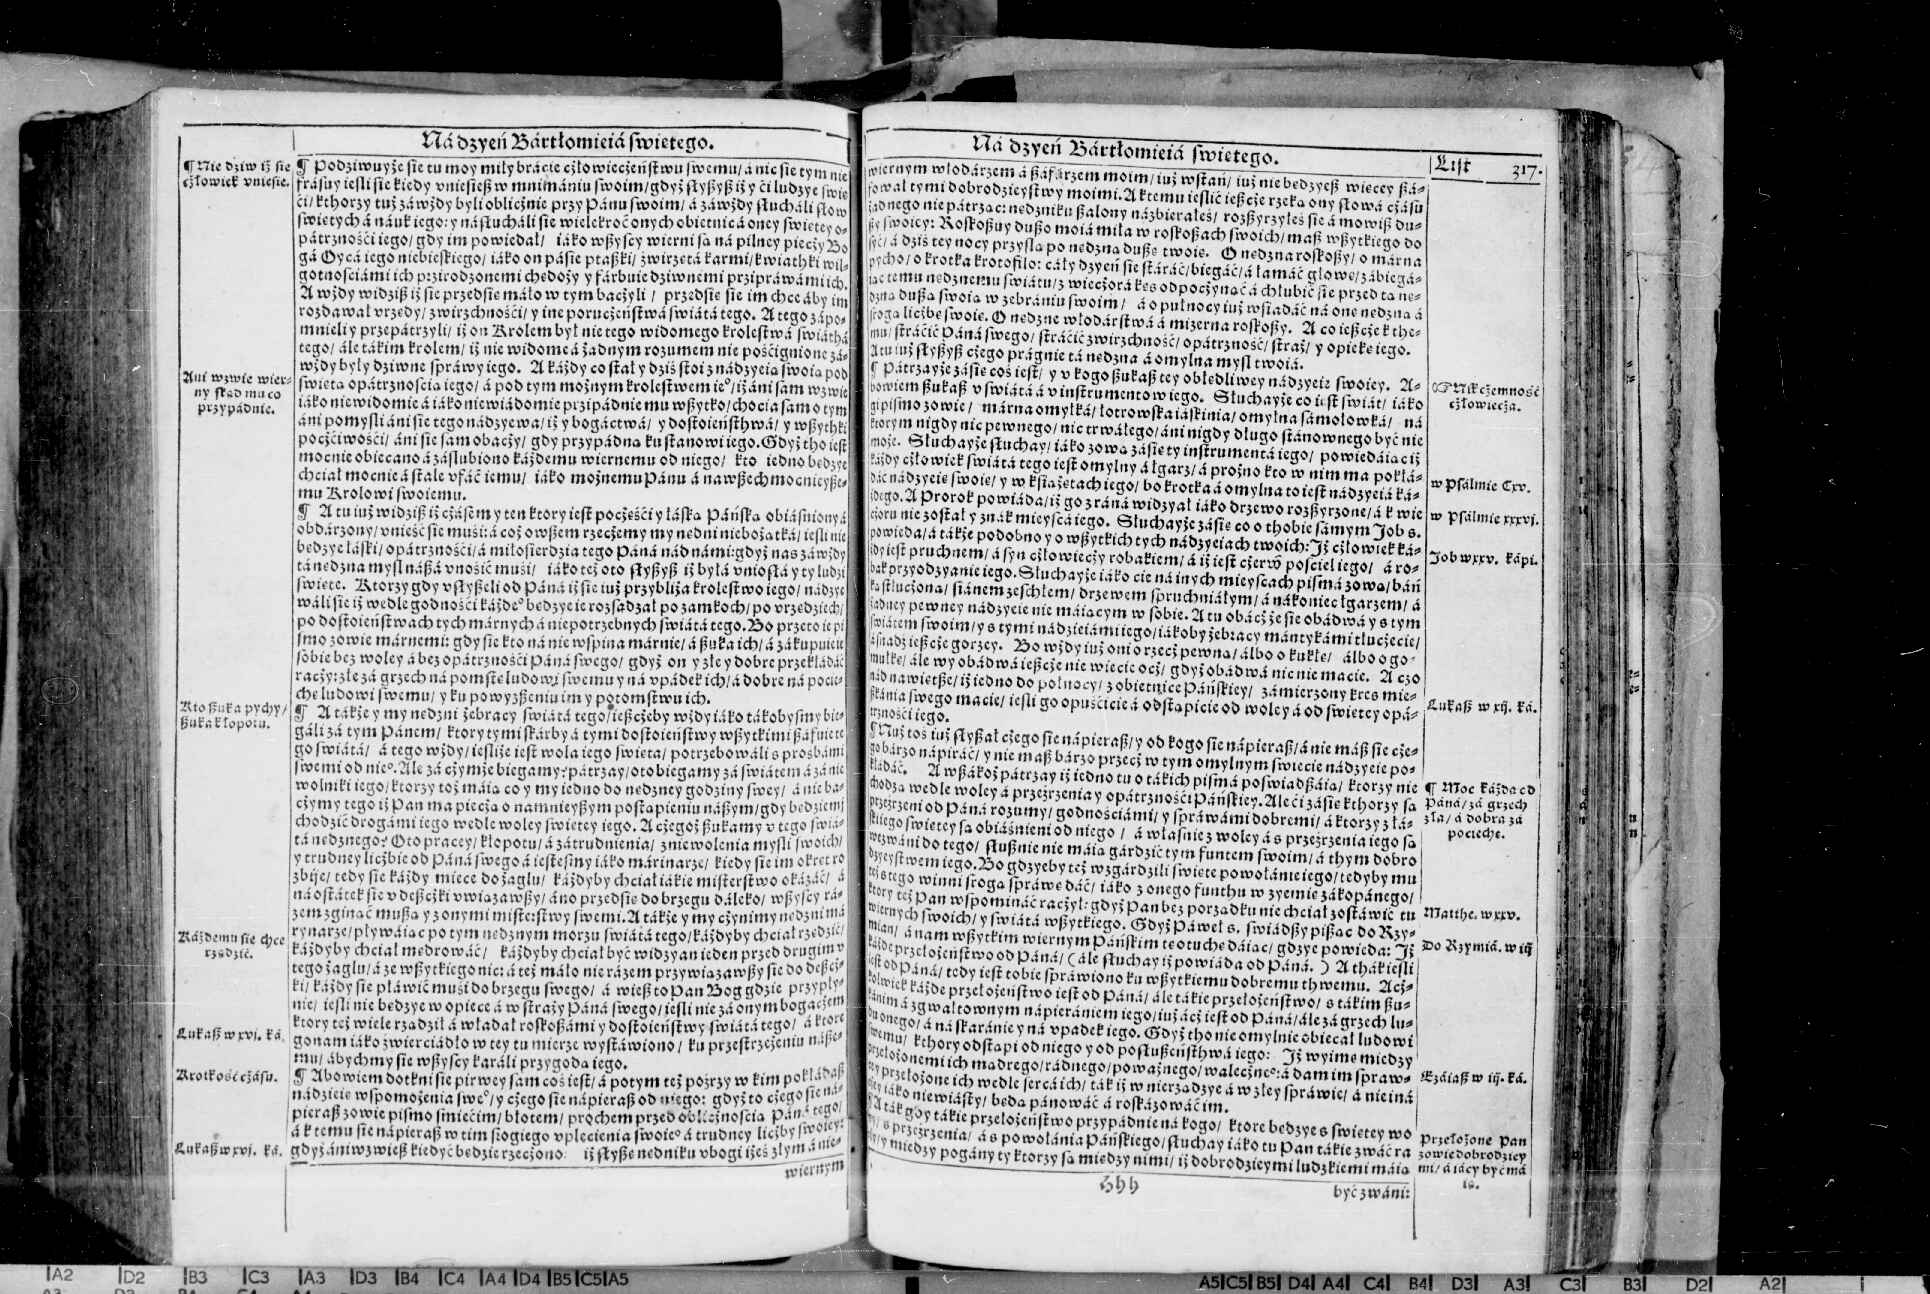 Ná dzyeń Bártłomieiá swietego.
¶ Nie dziw iż sie
człowiek vniesie.
¶ Podziwuyże sie tu moy miły brácie człowieczeństwu swemu/ á nic sie tym nie
frásuy iesli sie kiedy vniesiesz w mnimániu swoim/ gdyż słyszysz iż y ći ludzye swie
ći/ kthorzy tuż záwżdy byli oblicznie przy Pánu swoim/ á záwżdy słucháli słow
swietych á náuk iego: y násłucháli sie wielekroć onych obietnic á oney swietey o-
pátrznośći iego/ gdy im powiedał/ iáko wszyscy wierni są ná pilney pieczy Bo
gá Oycá iego niebieskiego/ iáko on pásie ptaszki/ źwirzętá karmi/ kwiathki wil-
gotnosciámi ich przirodzonemi chędoży y fárbuie dziwnemi przipráwámi ich.
A wżdy widzisz iż sie przedsie máło w tym baczyli/ przedsie sie im chce áby im
rozdawał vrzędy/ zwirzchnośći/ y ine poruczeństwá swiátá tego. A tego zápo-
mnieli y przepátrzyli/ iż on Krolem był nie tego widomego krolestwá swiáthá
tego/ ále tákim krolem/ iż nie widome á żadnym rozumem nie pośćignione zá-
wżdy były dziwne spráwy iego. A káżdy co stał y dziś stoi z nádzyeią swoią pod
swietą opátrznoscią iego/ á pod tym możnym krolestwem ieº/ iż áni sam wzwie
iáko niewidomie á iáko niewiádomie przipádnie mu wszytko/ chocia sam o tym
áni pomysli áni sie tego nádzyewa/ iż y bogáctwá/ y dostoieństhwá/ y wszythki
poczćiwośći/ áni sie sam obaczy/ gdy przypádną ku stanowi iego. Gdyż tho iest
mocnie obiecano á záslubiono káżdemu wiernemu od niego/ kto iedno będzye
chciał mocnie á stale vfáć iemu/ iáko możnemu Pánu á nawszech mocnieysze-
mu Krolowi swoiemu.
Ani wzwie wier-
ny skąd mu co
przypádnie.
¶ A tu iuż widzisz iż czásem y ten ktory iest poczęśći y łáską Páńską obiásniony á
obdárzony/ vnieść sie musi: á coż owszem rzeczemy my nędni niebożątká/ iesli nie
będzye łáski/ opátrznośći/ á miłosierdzia tego Páná nád námi: gdyż nas záwżdy
tá nędzna mysl nászá vnośić musi/ iáko też oto słyszysz iż byłá vniosłá y ty ludzi
swięte. Ktorzy gdy vsłyszeli od Páná iż sie iuż przybliża krolestwo iego/ nádzye
wáli sie iż wedle godnośći káżdeº będzye ie rozsadzał po zamkoch/ po vrzędziech/
po dostoieństwach tych márnych á niepotrzebnych swiátá tego. Bo przeto ie pi
smo zowie márnemi: gdy sie kto ná nie wspina márnie/ á szuka ich/ á zákupuie ie
sobie bez woley á bez opátrznośći Páná swego/ gdyż on y złe y dobre przekłádáć
raczy: złe zá grzech ná pomstę ludowi swemu y ná vpadek ich/ á dobre ná pocie-
chę ludowi swemu/ y ku powyższeniu im y potomstwu ich.
Kto szuka pychy/
szuka kłopotu.
¶ A tákże y my nędzni żebracy swiátá tego/ ieszczeby wżdy iáko tákobysmy bie-
gáli zá tym Pánem/ ktory tymi skárby á tymi dostoieństwy wszytkimi száfuie te
go swiátá/ á tego wżdy/ iesliże iest wola iego swięta/ potrzebowáli s prośbámi
swemi od nieº. Ale zá czymże biegamy: pátrzay/ oto biegamy zá swiátem á zá nie
wolniki iego/ ktorzy toż máią co y my iedno do nędzney godziny swey/ á nie ba-
czymy tego iż Pan ma pieczą o namnieyszym postąpieniu nászym/ gdy będziemy
chodzić drogámi iego wedle woley swiętey iego. A czegoż szukamy v tego swiá-
tá nędznego: Oto pracey/ kłopotu/ á zátrudnienia/ zniewolenia mysli swoich/
y trudney liczbie od Páná swego á iestesmy iáko márinarze/ kiedy sie im okręt ro
zbije/ tedy sie káżdy miece do żaglu/ káżdyby chciał iákie misterstwo okázáć/ á
ná ostátek sie v deszczki vwiązawszy/ áno przedsie do brzegu dáleko/ wszyscy rá-
zem zginąć muszą y z onymi misterstwy swemi. A tákże y my czynimy nędzni má
rynarze/ pływáiąc po tym nędznym morzu swiátá tego/ káżdyby chciał rzędzić/
káżdyby chciał mędrowáć/ káżdyby chciał być widzyan ieden przed drugim v
tego żaglu/ á ze wszytkiego nic: á też máło nie rázem przywiązawszy sie do deszcz-
ki/ káżdy sie płáwić musi do brzegu swego/ á wiesz to Pan Bog gdzie przypły-
nie/ iesli nie będzye w opiece á w straży Páná swego/ iesli nie zá onym bogaczem
ktory też wiele rządził á władał roskoszámi y dostoieństwy swiátá tego/ á ktore
gonam iáko zwierciádło w tey tu mierze wystáwiono/ ku przestrzeżeniu násze-
mu/ ábychmy sie wszyscy karáli przygodą iego.
Káżdemu sie chce
rządzić.
Lukasz w xvj. ká.
Krotkość czásu.
¶ Abowiem dotkni sie pirwey sam coś iest/ á potym też poźrzy w kim pokłádasz
nádzieię wspomożenia sweº/ y czego sie nápierasz od niego: gdyż to czego sie ná-
pierasz zowie pismo śmiećim/ błotem/ prochem przed oblicznoscią Páná tego/
á k temu sie nápierasz w tim srogiego vplecienia swoieº á trudney liczby swoiey:
gdyż áni wzwiesz kiedyć będzie rzeczono: iż słyszę nędniku vbogi iżeś złym á nie-
Lukasz w xvj. ká.
wiernym
Ná dzyeń Bártłomieiá swietego.
List 317.
wiernym włodárzem á száfárzem moim/ iuż wstań/ iuż nie będzyesz więcey szá-
fował tymi dobrodzieystwy moimi. A k temu ieslić ieszcze rzeką ony słowá czásu
żadnego nie pátrząc: nędzniku szalony názbierałeś/ rozszyrzyłeś sie á mowisz du-
szy swoiey: Roskoszuy duszo moiá miła w roskoszach swoich/ masz wszytkiego do
syć/ á dziś tey nocy przyślą po nędzną duszę twoię. O nędzna roskoszy/ o márna
pycho/ o krotka krotofilo: cáły dzyeń sie stáráć/ biegáć/ á łamáć głowę/ zábiegá-
iąc temu nędznemu swiátu/ z wieczorá kęs odpoczynąć á chłubić sie przed tą nę-
dzną duszą swoią w zebrániu swoim/ á o pułnocy iuż wsiadáć ná onę nędzną á
srogą liczbę swoię. O nędzne włodárstwá á mizerna roskoszy. A co ieszcze k the-
mu/ stráćić Páná swego/ stráćić zwirzchność/ opátrzność/ straż/ y opiekę iego.
A tu iuż słyszysz czego prágnie tá nędzna á omylna mysl twoiá.
¶ Pátrzayże zásię coś iest/ y v kogo szukasz tey obłędliwey nádzyeie swoiey. A-
bowiem szukasz v swiátá á v instrumentow iego. Słuchayże co iest swiát/ iáko
gi pismo zowie/ márna omyłká/ łotrowska iáskinia/ omylna sámołowká/ ná
ktorym nigdy nic pewnego/ nic trwáłego/ áni nigdy długo stánownego być nie
może. Słuchayże słuchay/ iáko zową zásię ty instrumentá iego/ powiedáiąc iż
káżdy człowiek swiátá tego iest omylny á łgarz/ á prozno kto w nim ma pokłá-
dáć nádzyeię swoię/ y w książętach iego/ bo krotka á omylna to iest nádzyeiá ká-
żdego. A Prorok powiáda/ iż go z ráná widzyał iáko drzewo rozszyrzone/ á k wie
czoru nie został y znák mieyscá iego. Słuchayże zásię co o thobie sámym Job s.
powieda/ á tákże podobno y o wszytkich tych nádzyeiach twoich: Iż człowiek ká-
żdy iest pruchnem/ á syn człowieczy robakiem/ á iż iest czerw pościel iego/ á ro-
bak przyodzyanie iego. Słuchayże iáko cie ná inych mieyscach pismá zową/ bań
ką stłuczoną/ śiánem zeschłem/ drzewem spruchniáłym/ á nákoniec łgarzem/ á
żadney pewney nádzyeie nie máiącym w sobie. A tu obacż że sie obádwá y s tym
swiátem swoim/ y s tymi nádzieiámi iego/ iákoby żebracy mántykámi tłuczecie/
á snadź ieszcze gorzey. Bo wżdy iuż oni orzecż pewną/ álbo o kukłę/ álbo o go-
mułkę/ ále wy obádwá ieszcze nie wiecie ocż/ gdyż obádwá nic nie macie. A czo
nád nawiętsze/ iż iedno do pułnocy/ z obietnice Páńskiey/ zámierzony kres mie-
szkánia swego macie/ iesli go opuśćicie á odstąpicie od woley á od swiętey opá-
trznośći iego.
¶ Nuż toś iuż słyszał czego sie nápierasz/ y od kogo sie nápierasz/ á nie masz sie cze-
go bárzo nápiráć/ y nie masz bárzo przecż w tym omylnym swiecie nádzyeie po-
kłádáć. A wszákoż pátrzay iż iedno tu o tákich pismá poswiadszáią/ ktorzy nie
chodzą wedle woley á przeźrzenia y opátrznośći Páńskiey. Ale ći zásię kthorzy są
przeźrzeni od Páná rozumy/ godnościámi/ y spráwámi dobremi/ á ktorzy z łá-
ski iego swiętey są obiásnieni od niego/ á własnie z woley á s przeźrzenia iego są
wezwáni do tego/ słusznie nie máią gárdzić tym funtem swoim/ á thym dobro
dzyeystwem iego. Bo gdzyeby też wzgárdzili święte powołánie iego/ tedyby mu
też s tego winni srogą spráwę dáć/ iáko z onego funthu w zyemię zákopánego/
ktory też Pan wspomináć raczył: gdyż Pan bez porządku nie chciał zostáwić tu
wiernych swoich/ y swiátá wszytkiego. Gdyż Páweł s. swiádszy pisząc do Rzy-
mian/ á nam wszytkim wiernym Páńskim tę otuchę dáiąc/ gdzye powieda: Iż
káżde przełożeństwo od Páná/ (ále słuchay iż powiáda od Páná.) A thák iesli
iest od Páná/ tedy iest tobie spráwiono ku wszytkiemu dobremu thwemu. Acż-
kolwiek káżde przełożeństwo iest od Páná/ ále tákie przełożeństwo/ s tákim szu-
kánim á zgwałtownym nápierániem iego/ iuż ácż iest od Páná/ ále zá grzech lu-
du onego/ á ná skaránie y ná vpadek iego. Gdyż tho nieomylnie obiecał ludowi
swemu/ kthory odstąpi od niego y od posłuszeństhwá iego: Iż wyimę miedzy
przełożonemi ich mądrego/ rádnego/ poważnego/ walecżneº: á dam im spraw-
cy przełożone ich wedle sercá ich/ ták iż w nierządzye á w złey spráwie/ á nieiná
czey iáko niewiásty/ będą pánowáć á roskázowáć im.
¶ A ták gdy tákie przełożeństwo przypádnie ná kogo/ ktore będzye s swiętey wo
ley/ s przeźrzenia/ á s powołánia Páńskiego/ słuchay iáko tu Pan tákie zwáć ra
czy/ y miedzy pogány ty ktorzy są miedzy nimi/ iż dobrodzieymi ludzkiemi máią
Nikczemność
człowiecza.
w Psálmie Cxv.
w Psálmie xxxvj.
Job w xxv. kápi.
Lukasz w xij. ká.
¶ Moc káżda od
Páná/ zá grzech
zła/ á dobra zá
pociechę.
Matthe. w xxv.
Do Rzymiá. w iij
Ezáiasz w iij. ká.
Przełożone Pan
zowie dobrodziey
mi/ á iácy być má
ią.
Hhh
być zwáni:
A2 D2 B3 C3 A3 D3 B4 C4 A4 D4 B5 C5 A5
A5 C5 B5 D4 A4 C4 B4 D3 A3 C3 B3 D2 A2